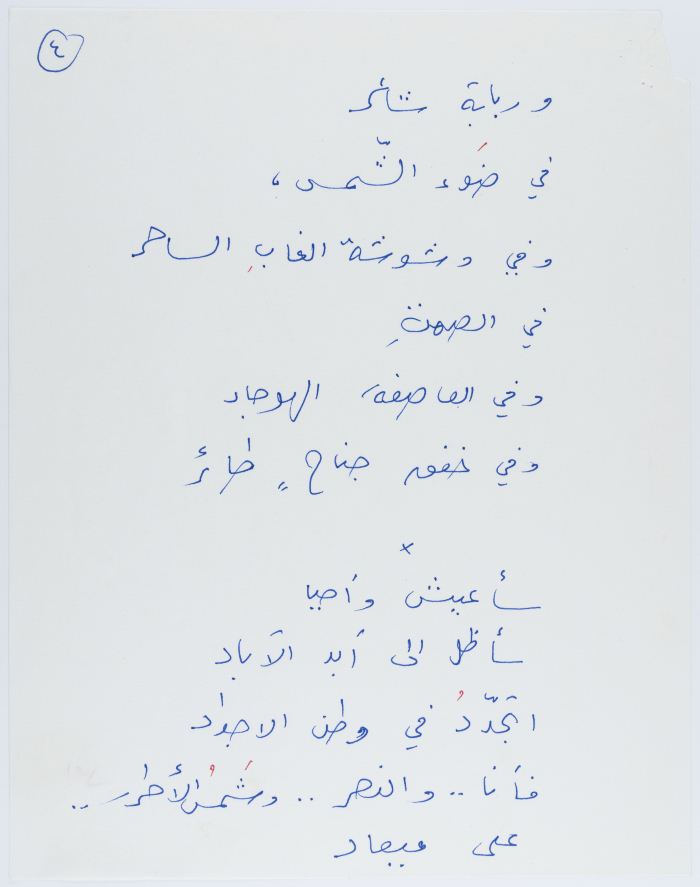 ٤
وربابة ثائر
في ضَوء الشّمس،
وفي وشوشة الغابِ الساحر
في الصمتِ
وفي العاصفة الهوجاء
وفي خفق جناحٍ طائر
×
سأعيش وأحيا
سأظل الى أبد الآباد
اتجدّدُ في وطن الاجداد
فأنا .. والنصر .. وشَمسُ الأحرار ..
على ميعاد